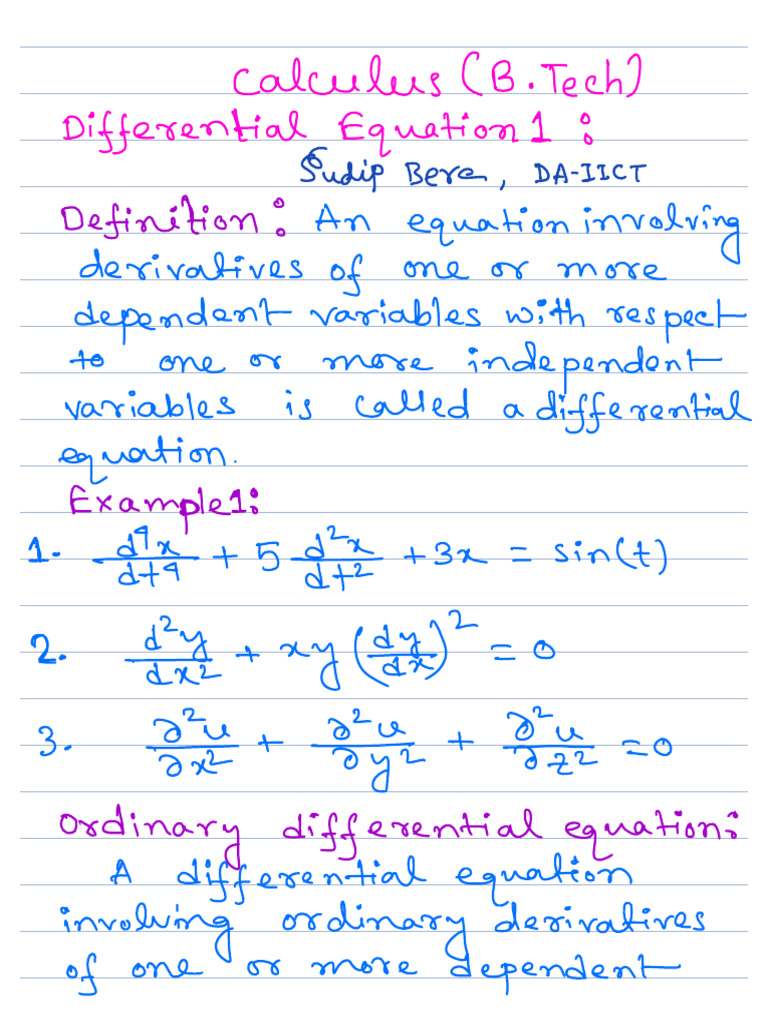 Calculus (B.Tech)
Differential Equation 1 :
Sudip Bera, DA-IICT
Definition: An equation involving
derivatives of one or more
dependent variables with respect
to one or more independent
variables is called a differential
equation.
Example 1:
1. d⁴x/dt⁴ + 5 d²x/dt² + 3x = sin(t)
2. d²y/dx² + xy (dy/dx)² = 0
3. ∂²u/∂x² + ∂²u/∂y² + ∂²u/∂z² = 0
Ordinary differential equation:
A differential equation
involving ordinary derivatives
of one or more dependent